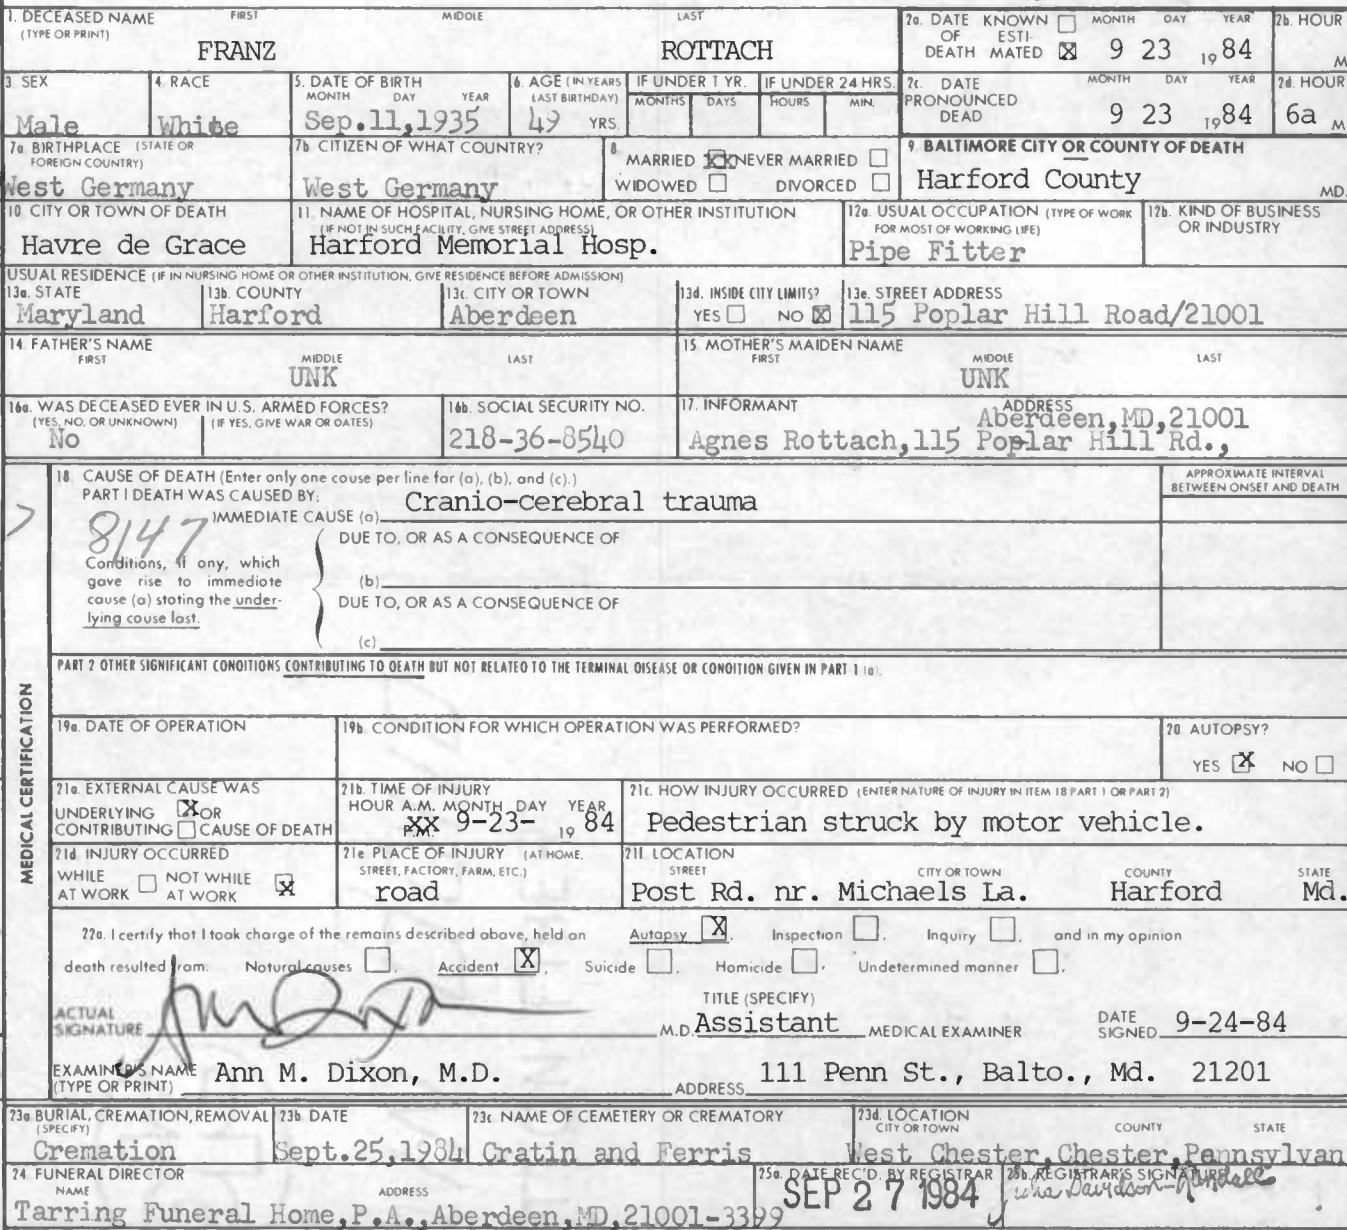 1. DECEASED NAME (TYPE OR PRINT) FIRST MIDDLE LAST
FRANZ ROTTACH
2a. DATE OF DEATH KNOWN ESTIMATED X MONTH DAY YEAR
9 23 1984
2b. HOUR M
3. SEX
Male
4. RACE
White
5. DATE OF BIRTH MONTH DAY YEAR
Sep.11,1935
6. AGE (IN YEARS LAST BIRTHDAY)
49 YRS.
IF UNDER 1 YR. MONTHS DAYS
IF UNDER 24 HRS. HOURS MIN.
2c. DATE PRONOUNCED DEAD MONTH DAY YEAR
9 23 1984
2d. HOUR
6a M
7a. BIRTHPLACE (STATE OR FOREIGN COUNTRY)
West Germany
7b. CITIZEN OF WHAT COUNTRY?
West Germany
8. MARRIED XX NEVER MARRIED
WIDOWED DIVORCED
9. BALTIMORE CITY OR COUNTY OF DEATH
Harford County MD.
10. CITY OR TOWN OF DEATH
Havre de Grace
11. NAME OF HOSPITAL, NURSING HOME, OR OTHER INSTITUTION
(IF NOT IN SUCH FACILITY, GIVE STREET ADDRESS)
Harford Memorial Hosp.
12a. USUAL OCCUPATION (TYPE OF WORK FOR MOST OF WORKING LIFE)
Pipe Fitter
12b. KIND OF BUSINESS OR INDUSTRY
USUAL RESIDENCE (IF IN NURSING HOME OR OTHER INSTITUTION, GIVE RESIDENCE BEFORE ADMISSION)
13a. STATE
Maryland
13b. COUNTY
Harford
13c. CITY OR TOWN
Aberdeen
13d. INSIDE CITY LIMITS?
YES NO X
13e. STREET ADDRESS
115 Poplar Hill Road/21001
14. FATHER'S NAME FIRST MIDDLE LAST
UNK
15. MOTHER'S MAIDEN NAME FIRST MIDDLE LAST
UNK
16a. WAS DECEASED EVER IN U.S. ARMED FORCES?
(YES, NO, OR UNKNOWN) (IF YES, GIVE WAR OR DATES)
No
16b. SOCIAL SECURITY NO.
218-36-8540
17. INFORMANT ADDRESS
Aberdeen,MD,21001
Agnes Rottach,115 Poplar Hill Rd.,
MEDICAL CERTIFICATION
18. CAUSE OF DEATH (Enter only one cause per line for (a), (b), and (c).)
APPROXIMATE INTERVAL BETWEEN ONSET AND DEATH
PART I DEATH WAS CAUSED BY:
IMMEDIATE CAUSE (a) Cranio-cerebral trauma
8147
DUE TO, OR AS A CONSEQUENCE OF
Conditions, if any, which
gave rise to immediate
cause (a) stating the under-
lying cause last.
(b)
DUE TO, OR AS A CONSEQUENCE OF
(c)
PART 2 OTHER SIGNIFICANT CONDITIONS CONTRIBUTING TO DEATH BUT NOT RELATED TO THE TERMINAL DISEASE OR CONDITION GIVEN IN PART 1 (a).
19a. DATE OF OPERATION
19b. CONDITION FOR WHICH OPERATION WAS PERFORMED?
20. AUTOPSY?
YES X NO
21a. EXTERNAL CAUSE WAS
UNDERLYING X OR
CONTRIBUTING CAUSE OF DEATH
21b. TIME OF INJURY
HOUR A.M. MONTH DAY YEAR
P.M. XX 9-23- 1984
21c. HOW INJURY OCCURRED (ENTER NATURE OF INJURY IN ITEM 18 PART 1 OR PART 2)
Pedestrian struck by motor vehicle.
21d. INJURY OCCURRED
WHILE AT WORK NOT WHILE AT WORK X
21e. PLACE OF INJURY (AT HOME, STREET, FACTORY, FARM, ETC.)
road
21f. LOCATION
STREET CITY OR TOWN COUNTY STATE
Post Rd. nr. Michaels La. Harford Md.
22a. I certify that I took charge of the remains described above, held an Autopsy X, Inspection , Inquiry , and in my opinion
death resulted from: Natural causes , Accident X, Suicide , Homicide , Undetermined manner .
ACTUAL SIGNATURE M.D.
TITLE (SPECIFY)
Assistant MEDICAL EXAMINER
DATE SIGNED 9-24-84
EXAMINER'S NAME (TYPE OR PRINT) Ann M. Dixon, M.D.
ADDRESS 111 Penn St., Balto., Md. 21201
23a. BURIAL, CREMATION, REMOVAL (SPECIFY)
Cremation
23b. DATE
Sept.25,1984
23c. NAME OF CEMETERY OR CREMATORY
Cratin and Ferris
23d. LOCATION CITY OR TOWN COUNTY STATE
West Chester,Chester,Pennsylvan
24. FUNERAL DIRECTOR
NAME ADDRESS
Tarring Funeral Home,P.A.,Aberdeen,MD,21001-3399
25a. DATE REC'D. BY REGISTRAR
SEP 27 1984
25b. REGISTRAR'S SIGNATURE
Julia Davidson-Randall